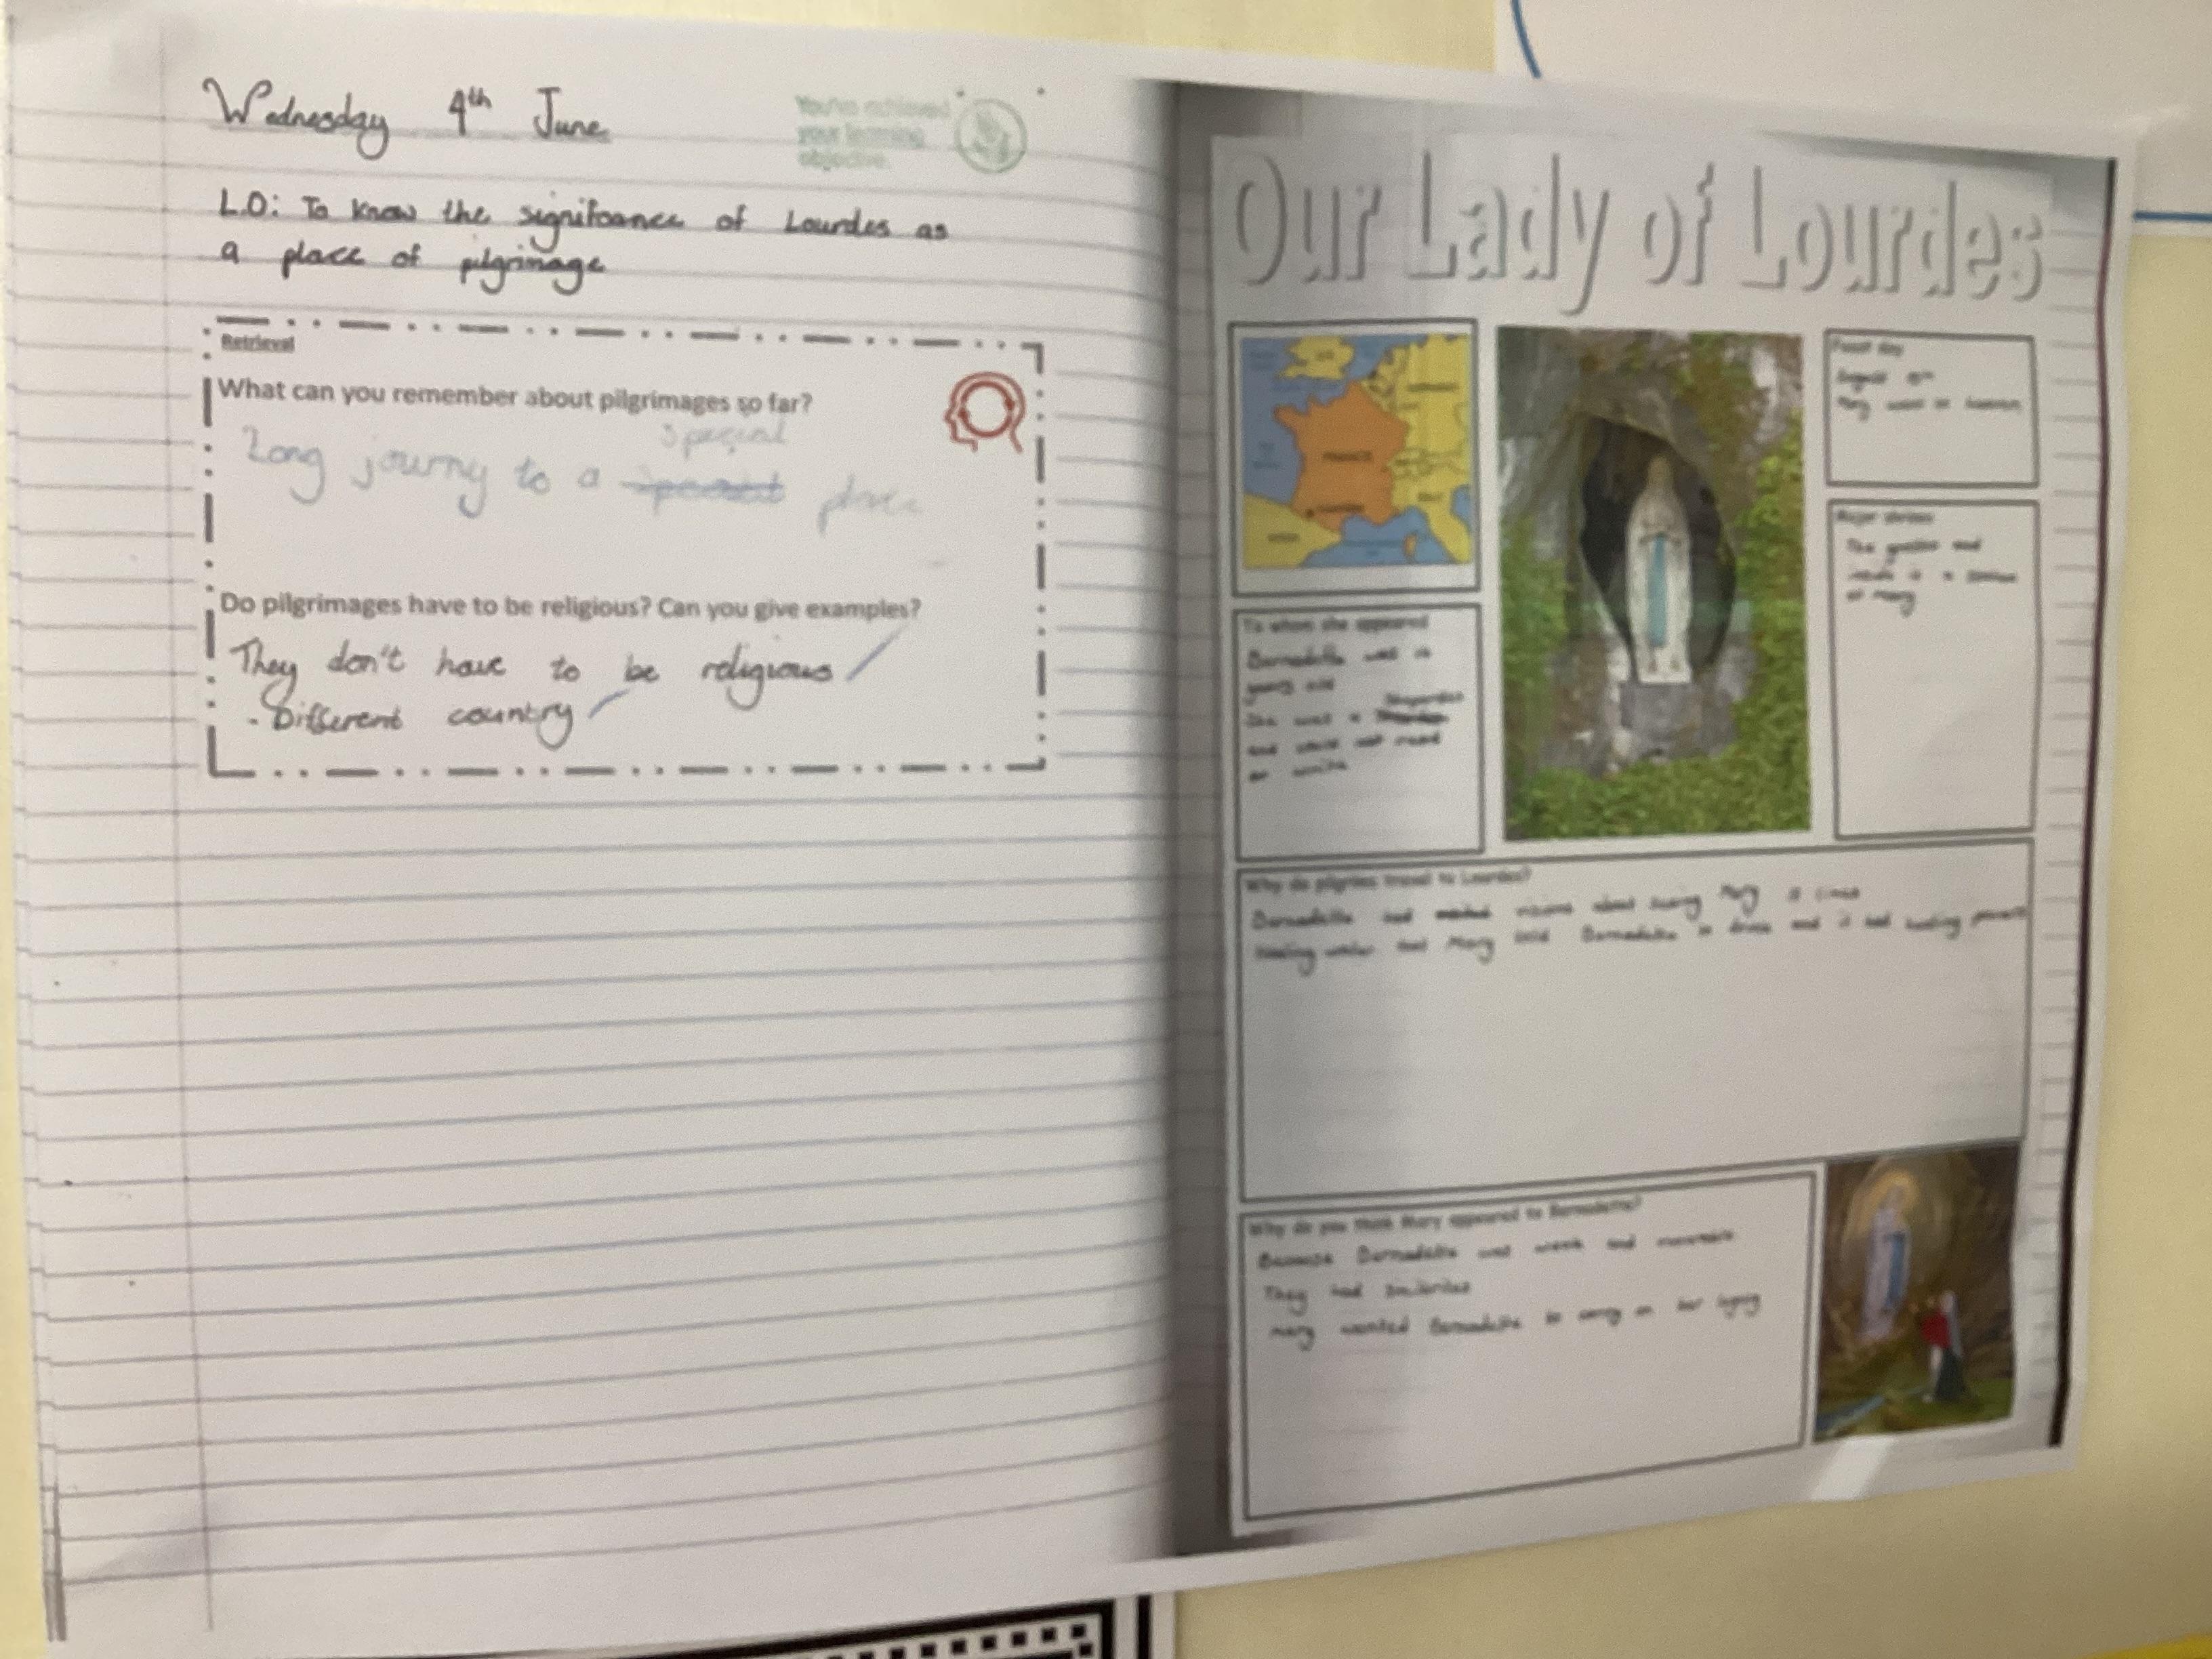 Wednesday 4th June
You've achieved
your learning
objective.
L.O: To know the signifcance of Lourdes as
a place of pilgrimage
Retrieval
What can you remember about pilgrimages so far?
special
Long journy to a place
Do pilgrimages have to be religious? Can you give examples?
They don't have to be religious
- Different country
Our Lady of Lourdes
FRANCE
To whom she appeared
Bernadette was
years old
She was a
and could not read
or write
Feast day
August
Mary went to heaven
Major shrines
The grotto and
is a statue
of Mary
Why do pilgrims travel to Lourdes?
Bernadette had visions about seeing Mary times
Healing water that Mary told Bernadette to drink and it had healing powers
Why do you think Mary appeared to Bernadette?
Because Bernadette was weak and
They had similarites
Mary wanted Bernadette to carry on her legacy